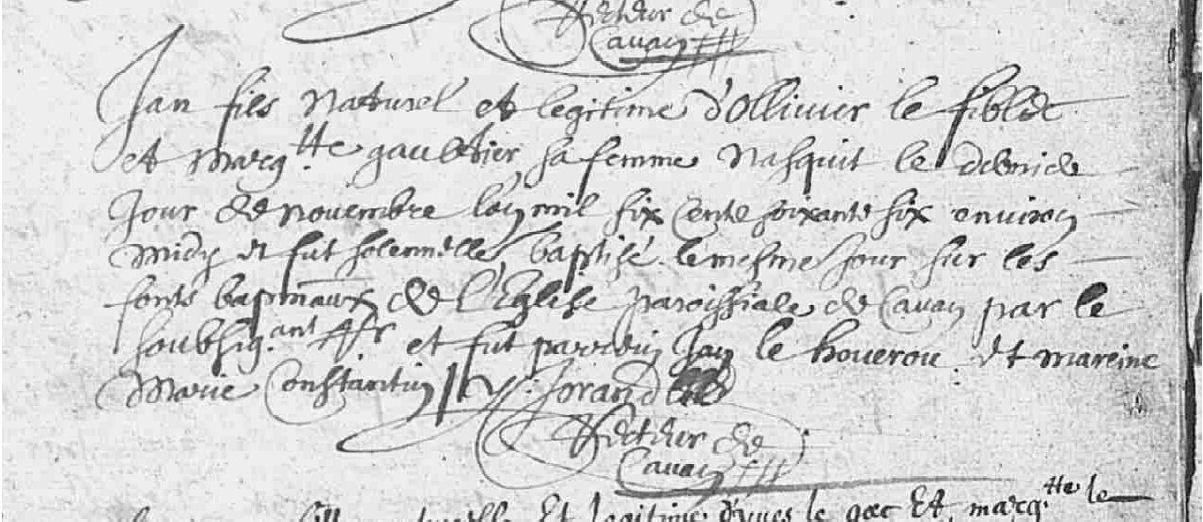 Recteur de
Cavan
Jan fils naturel et legitime d'Ollivier le fiblec
et Marg.tte gaultier sa femme nasquit le dernier
jour de novembre l'an mil six cents soixante six environ
midy et fut solemnelle baptisé le mesme jour sur les
fonts baptismaux de l'Eglise paroissiale de Cavan par le
soubsig.ant et fut parrein Jan le houerou et mareine
Marie Constantin Y: Jorand
Recteur de
Cavan
et legitime d'yves le gac Et marg.tte le